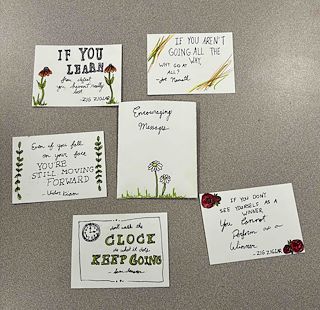 IF YOU
LEARN
from defeat
you haven't really
lost
-ZIG ZIGLAR
IF YOU AREN'T
GOING ALL THE
WAY,
WHY GO AT
ALL?
- Joe Namath
Encouraging
Messages
Even if you fall
on your face
YOU'RE
STILL MOVING
FORWARD
- Victor Kiam
IF YOU DON'T
SEE YOURSELF AS A
WINNER
You Cannot
Perform as a
Winner
-ZIG ZIGLAR
don't watch the
CLOCK
do what it does
KEEP GOING
- Sam Levenson